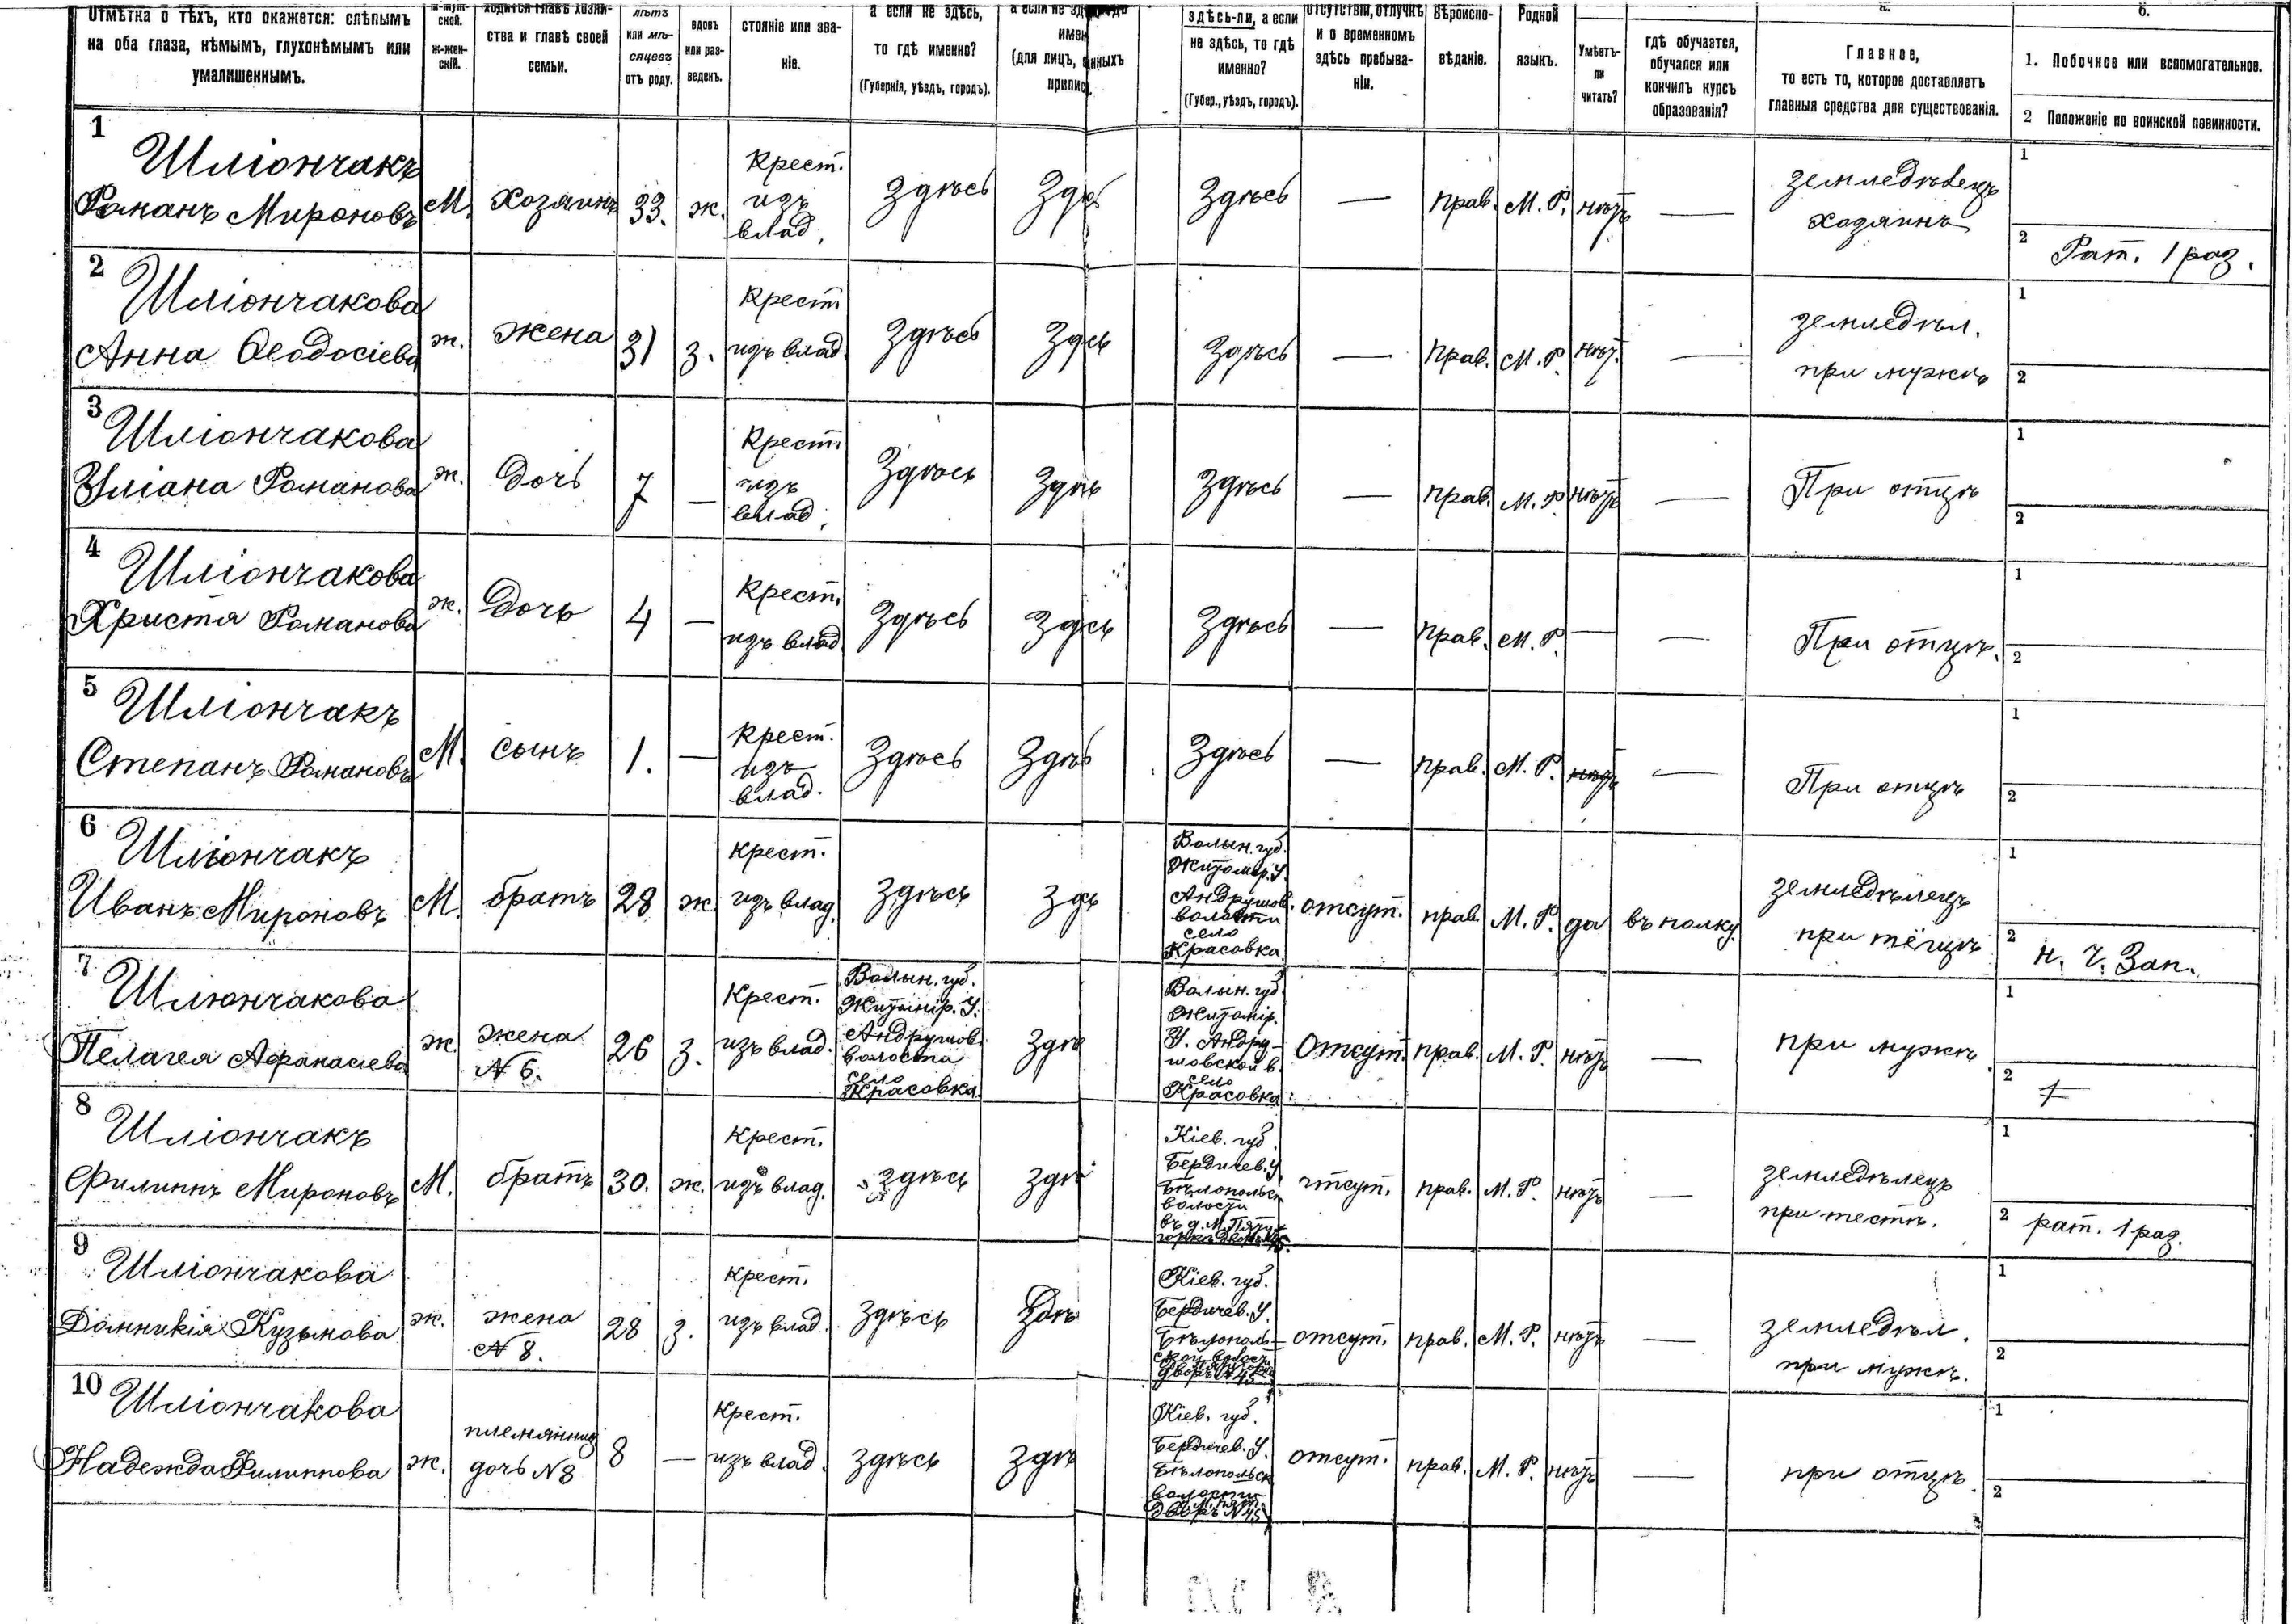 Отмѣтка о тѣхъ, кто окажется: слѣпымъ
на оба глаза, нѣмымъ, глухонѣмымъ или
умалишеннымъ.
ской.
ж-жен-
скій.
ства и главѣ своей
семьи.
лѣтъ
или мѣ-
сяцевъ
отъ роду.
вдовъ
или раз-
веденъ.
стояніе или зва-
ніе.
а если не здѣсь,
то гдѣ именно?
(Губернія, уѣздъ, городъ).
имен
(для лицъ,
припис
здѣсь-ли, а если
не здѣсь, то гдѣ
именно?
(Губер., уѣздъ, городъ).
отсутствіи, отлучкѣ
и о временномъ
здѣсь пребыва-
ніи.
Вѣроиспо-
вѣданіе.
Родной
языкъ.
Умѣетъ-
ли
читать?
гдѣ обучается,
обучался или
кончилъ курсъ
образованія?
а.
Главное,
то есть то, которое доставляетъ
главныя средства для существованія.
б.
1. Побочное или вспомогательное.
2 Положеніе по воинской повинности.
1
Шліончакъ
Романъ Мироновъ
М.
хозяинъ
33.
ж.
Крест.
изъ
влад.
Здѣсь
Здѣсь
—
прав.
М. Р.
нѣтъ
—
земледѣлецъ
хозяинъ
1
2 Рат. 1 раз.
2
Шліончакова
Анна Ѳеодосіева
ж.
жена
31
з.
Крест
изъ влад.
Здѣсь
Здѣсь
—
прав.
М. Р.
нѣт.
—
земледѣл.
при мужѣ
1
2
3
Шліончакова
Уліана Романова
ж.
дочь
7
—
Крест.
изъ
влад.
Здѣсь
Здѣсь
—
прав.
М. Р.
нѣтъ
—
При отцѣ
1
2
4
Шліончакова
Христя Романова
ж.
дочь
4
—
Крест.
изъ влад
Здѣсь
Здѣсь
—
прав.
М. Р.
—
—
При отцѣ.
1
2
5
Шліончакъ
Степанъ Романовъ
М.
сынъ
1.
—
Крест.
изъ
влад.
Здѣсь
Здѣсь
—
прав.
М. Р.
нѣтъ
—
При отцѣ
1
2
6
Шліончакъ
Иванъ Мироновъ
М.
братъ
28
ж.
Крест.
изъ влад.
здѣсь
Волын. губ.
Житомір. У.
Андрушов.
волости
село
Красовка
отсут.
прав.
М. Р.
да
въ полку
земледѣлецъ
при тёщѣ
1
2 н. ч. Зап.
7
Шлюнчакова
Пелагея Афанасіева
ж.
жена
№ 6.
26
з.
Крест.
изъ влад.
Волын. губ.
Житомір. У.
Андрушов.
волости
село
Красовка
Волын. губ.
Житомір.
У. Андру-
шовской в.
село
Красовка
Отсут.
прав.
М. Р.
нѣтъ
—
при мужѣ
1
2
8
Шліончакъ
Филиппъ Мироновъ
М.
братъ
30.
ж.
Крест.
изъ влад.
здѣсь
Кіев. губ.
Бердичев. У.
Бѣлопольск
волости
отсут.
прав.
М. Р.
нѣтъ
—
земледѣлецъ
при тестѣ.
1
2 рат. 1 раз.
9
Шліончакова
Домникія Кузьмова
ж.
жена
№ 8.
28
з.
Крест.
изъ влад.
здѣсь
Кіев. губ.
Бердичев. У.
Бѣлополь-
ской волости
дворъ № 45
отсут.
прав.
М. Р.
нѣтъ
—
земледѣл.
при мужѣ.
1
2
10
Шліончакова
Надежда Филиппова
ж.
племянниц
дочь № 8
8
—
Крест.
изъ влад.
здѣсь
Кіев. губ.
Бердичев. У.
Бѣлопольск
волости
дворъ № 45
отсут.
прав.
М. Р.
нѣтъ
—
при отцѣ.
1
2